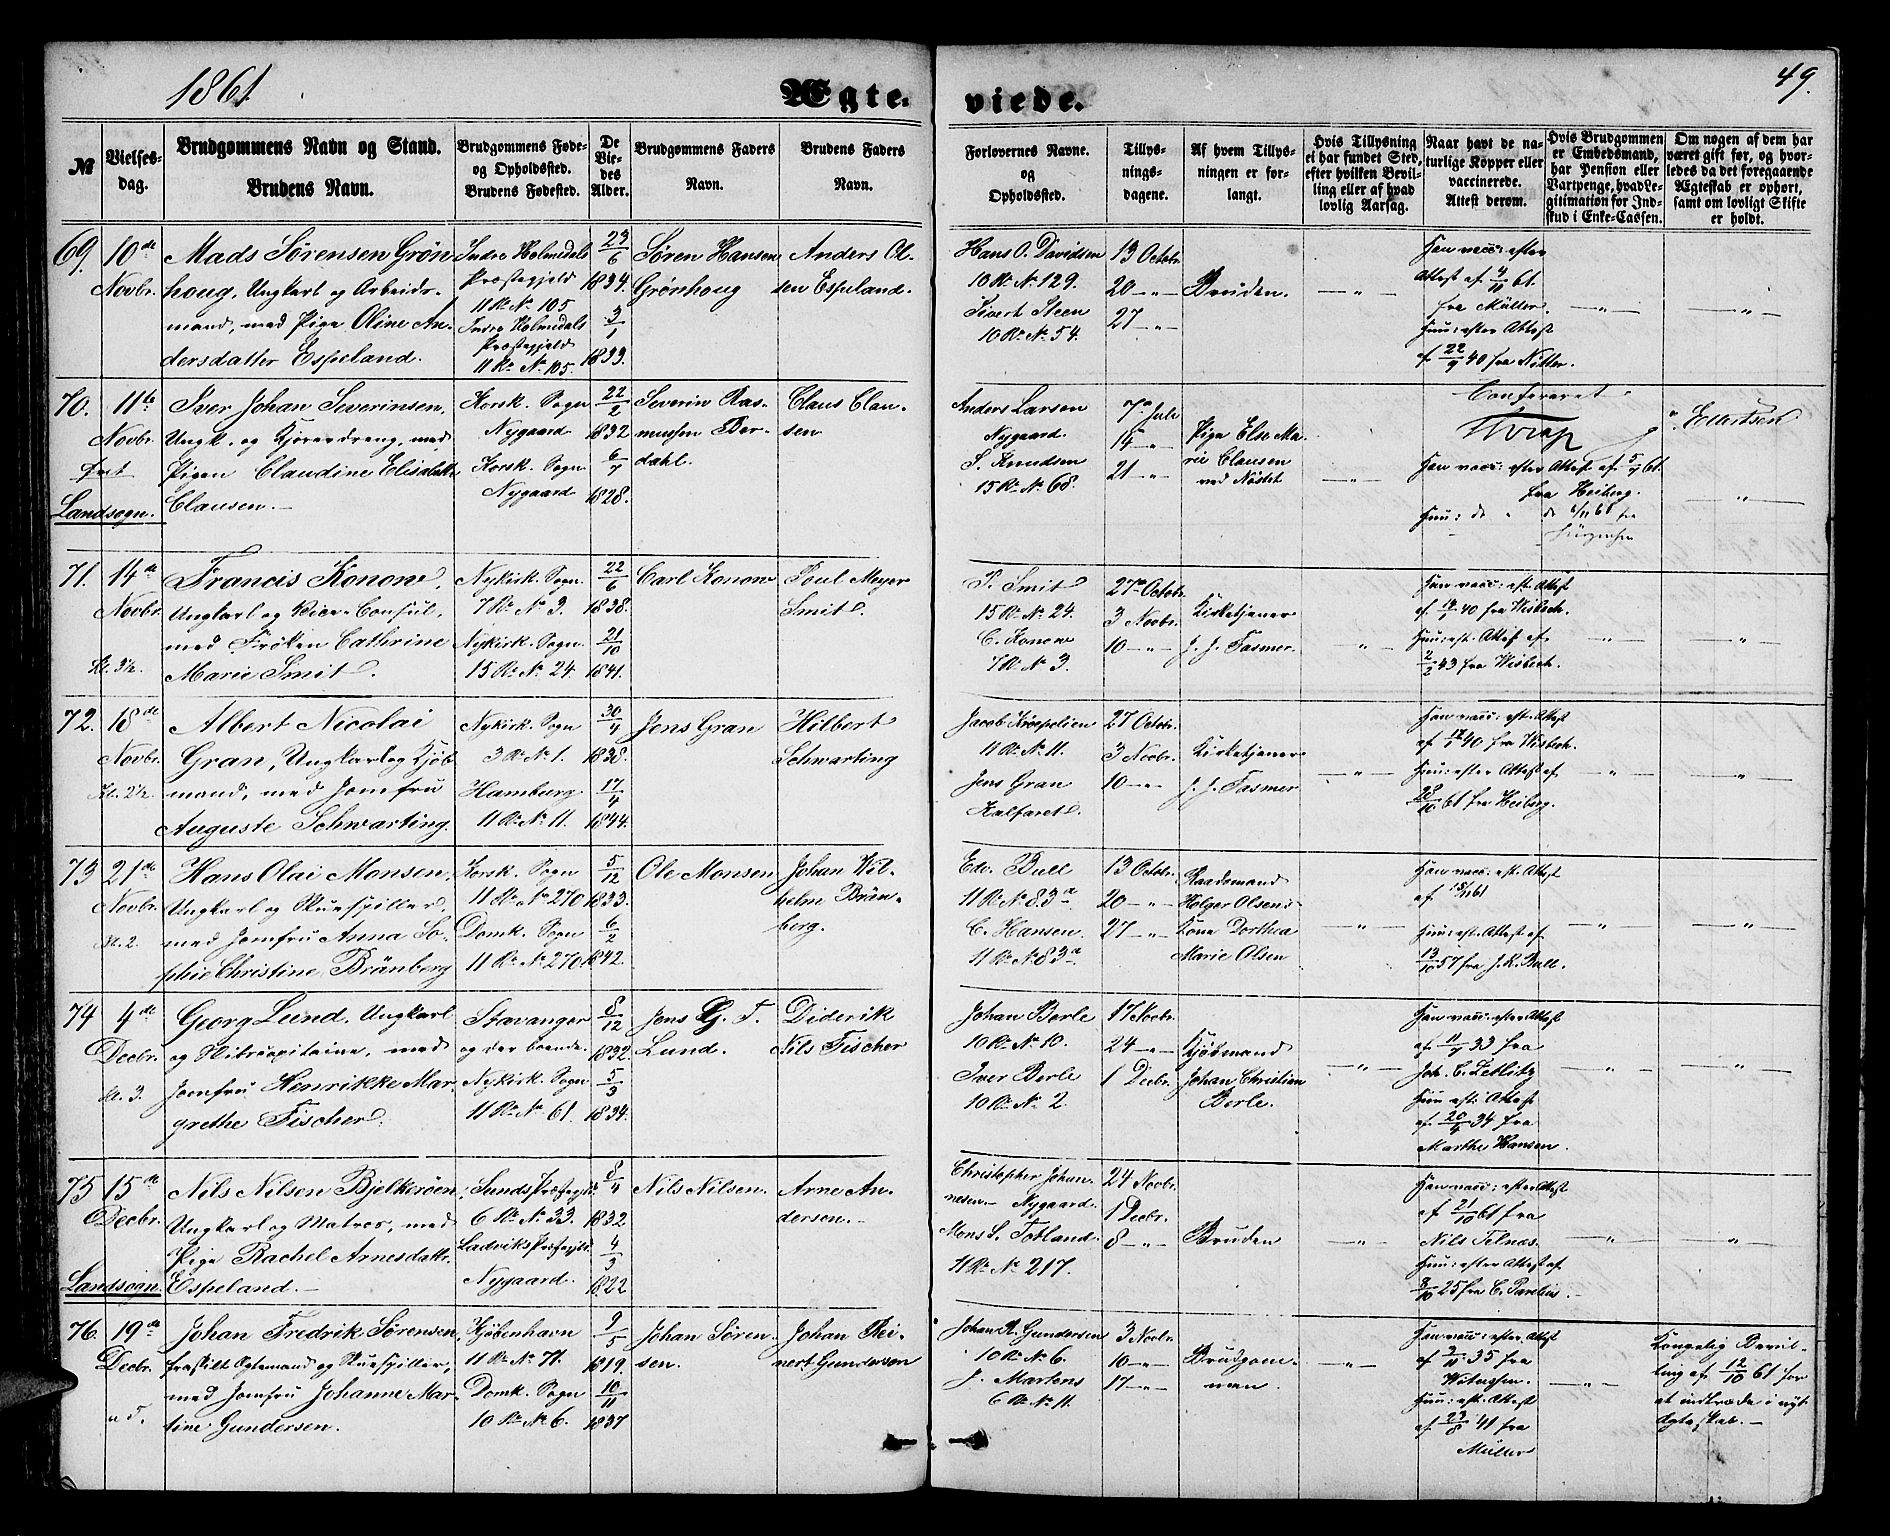 1861.
Ægte-
viede.
49.
№
Vielses-
dag.
Brudgommens Navn og Stand.
Brudens Navn.
Brudgommens Føde-
og Opholdssted.
Brudens Fødested.
De
Vie-
des
Alder.
Brudgommens Faders
Navn.
Brudens Faders
Navn.
Forlovernes Navne.
og
Opholdssted.
Tillys-
nings-
dagene.
Af hvem Tillys-
ningen er for-
langt.
Hvis Tillysning
ei har fundet Sted,
efter hvilken Bevil-
ling eller af hvad
lovlig Aarsag.
Naar havt de na-
turlige Kopper eller
vaccinerede.
Attest derom.
Hvis Brudgommen
er Embedsmand,
har Pension eller
Vartpenge, hvad Le-
gitimation for Ind-
skud i Enke-Cassen.
Om nogen af dem har
været gift før, og hvor-
ledes da det foregaaende
Ægteskab er ophørt,
samt om lovligt Skifte
er holdt.
69.
10de
Novbr.
Mads Sørensen Grøn
houg, Ungkarl og Arbeids-
mand, med Pige Oline An-
dersdatter Espeland.
Indre Holmedals
Præstegjeld
11 Rd. No. 105
Indre Holmedals
Præstegjeld
11 Rd. No. 105.
23/6
1834.
3/1
1833.
Søren Hansen
Grønhoug
Anders Ol-
sen Espeland.
Hans O. Davidsen
10 Rd. No. 129.
Sivert Steen
10 Rd. No. 54.
13 Octobr.
20 —"—
27 —"—
Bruden.
—"—
Han vacc: efter
Attest af 9/11 61.
fra Müller.
Hun: efter Attest
af 22/9 40 fra Nitter.
—"—
—"—
70.
11te
Novbr.
Landsogn.
Iver Johan Severinsen,
Ungk. og Kjøredreng, med
Pigen Claudine Elisabeth
Clausen.—
Korsk. Sogn
Nygaard
Korsk. Sogn
Nygaard
22/2
1832
6/7
1828.
Severin Ras-
mussen Ber-
dahl.
Claus Clau-
sen
Anders Larsen
Nygaard.
S. Knudsen
15 Rd. No. 68.
7de Juli
14 —"—
21 —"—
Pige Else Ma-
rie Clausen
ved Nøstet
—"—
Confereret
Ellertsen
Han vacc: efter Attest af 5/7 61.
fra Heiberg.
Hun: do " do 6/11 61 fra
—"—
71.
14de
Novbr.
Kl. 3½.
Francis Konow,
Ungkarl og Vice-Consul,
med Frøken Cathrine
Marie Smit.
Nykirk. Sogn.
7 Rd. No. 3.
Nykirk. Sogn.
15 Rd. No. 24.
22/6
1838.
21/10
1841.
Carl Konow
Poul Meyer
Smit.
P. Smit
15 Rd. No. 24.
C. Konow
7 Rd. No. 3.
27de Octobr.
3 Novbr.
10 —"—
Kirketjener
J. J. Fasmer.
—"—
Han vacc: eft. Attest
40 fra Wisbech.
Hun: eft. Attest af
2/2 43 fra Wisbech.
—"—
—"—
72.
18de
Novbr.
Kl. 2½.
Albert Nicolai
Gran, Ungkarl og Kjøb-
mand, med Jomfru
Auguste Schwarting.
Nykirk. Sogn
3 Rd. No. 1.
Hamburg
11 Rd. No. 11.
30/4
1838.
17/4
1844.
Jens Gran
Hilbert
Schwarting
Jacob Krøepelien
11 Rd. No. 11.
Jens Gran
Kalfaret.
27 Octobr.
3 Novbr.
10 —"—
Kirketjener
J. J. Fasmer
—"—
Han vacc: eft. Attest
40 fra Wisbech.
Hun: efter Attest af
28/10 61 fra Heiberg.
—"—
—"—
73
21de
Novbr.
Kl. 2.
Hans Olai Monsen,
Ungkarl og Skuespiller,
med Jomfru Anna So-
phie Christine Brünberg
Korsk. Sogn
11 Rd. No. 270
Domk. Sogn
11 Rd. No. 270.
5/12
1833.
6/2
1842.
Ole Monsen
Johan Wil-
helm Brün-
berg.
Edv. Bull
11 Rd. No. 83a
C. Hansen
11 Rd. No. 83a.
13 Octobr.
20 —"—
27 —"—
Raadsmand
Holger Olsens
Kone Dorthea
Marie Olsen
—"—
Han vacc: eft. Attest
af 18/11 61
Hun: eft. Attest af
13/10 57 fra J. K. Bull.
—"—
—"—
74
4de
Decbr.
Kl. 3.
Georg Lund, Ungkarl
og Skibscapitaine, med
Jomfru Henrikke Mar-
grethe Fischer.
Stavanger
og der boende.
Nykirk. Sogn
11 Rd. No. 61.
8/12
1832.
5/3
1834.
Jens G. T.
Lund.
Diderik
Nils Fischer
Johan Berle
10 Rd. No. 10.
Iver Berle
10 Rd. No. 2.
17 Novbr.
24 —"—
1 Decbr.
Kjøbmand
Johan Christian
Berle.
—"—
Han vacc: efter Attest
af 11/7 33 fra
Joh. C. Zetlitz
Hun eft: Attest
af 20/4 34 fra
Marthe Hansen.
—"—
—"—
75
15de
Decbr.
Landsogn.
Nils Nilsen Bjelkerøen,
Ungkarl og Matros, med
Pige Rachel Arnesdatter
Espeland.—
Sunds Præstegjeld
6 Rd. No. 33.
Ladviks Præstegjeld.
Nygaard.
8/4
1832.
4/3
1822.
Nils Nilsen.
Arne An-
dersen.—
Christopher Johan-
nesen— Nygaard.
Mons S. Totland.
11 Rd. No. 217.
24 Novbr.
1 Decbr.
8 —"—
Bruden
—"—
Han vacc: efter Attest
af 21/10 61 fra
Nils Telnæs.
Hun: efter Attest af
3/10 25 fra C. Parelius.—
—"—
—"—
76.
19de
Decbr.
Johan Fredrik Sørensen,
fraskilt Ægtemand og Skuespiller,
med Jomfru Johanne Mar-
tine Gundersen.
Kjøbenhavn
11 Rd. No. 71.
Domk. Sogn
10 Rd. No. 6.
9/5
1819.
10/11
1837
Johan Søren-
sen.
Johan Rei-
nert Gundersen
Johan R. Gundersen
10 Rd. No. 6.
J. Martens
6 Rd. No. 11.
3 Novbr.
10 —"—
17 —"—
Brudgom-
men.
—"—
Han vacc: efter Attest
35 fra
Hun: eft. Attest
af 23/8 41 fra
Müller
—"—
Kongelig Bevil-
ling af 12/10 61 for
at indtræde i nyt
Ægteskab.—